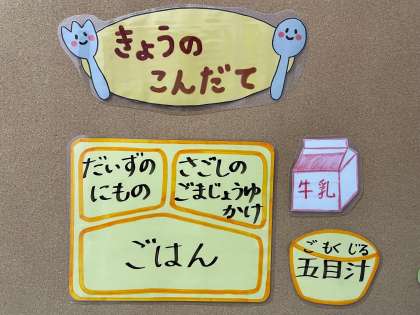 きょうの
こんだて
だいずの
にもの
さごしの
ごまじょうゆ
かけ
ごはん
牛乳
ごもくじる
五目汁